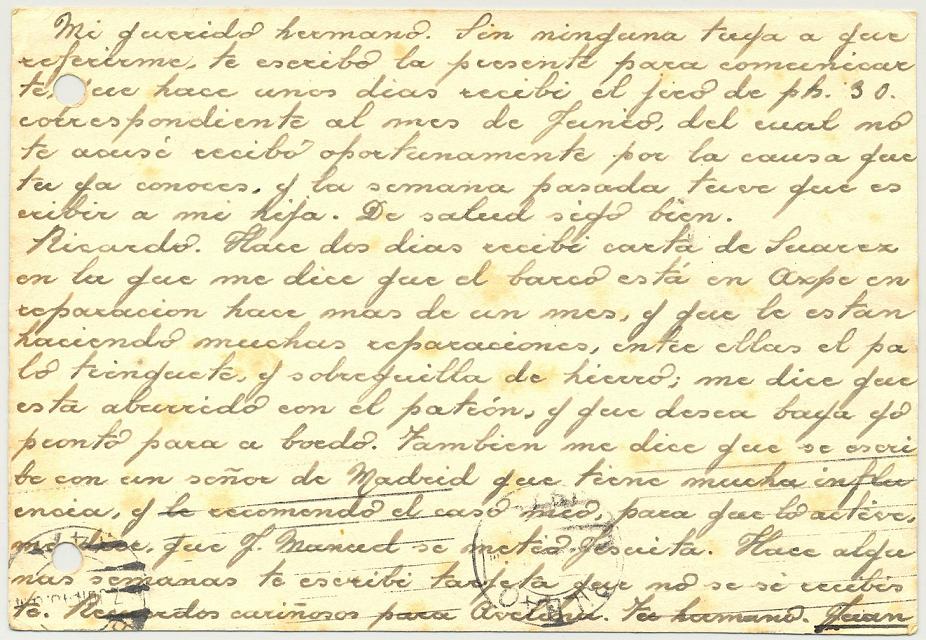 Mi querido hermano. Sin ninguna tuya a que
referirme, te escribo la presente para comunicar
te, que hace unos dias recibi el jiro de pts. 30.
correspondiente al mes de Junio, del cual no
te acusé recibo oportunamente por la causa que
tu ya conoces, y la semana pasada tuve que es
cribir a mi hija. De salud sigo bien.
Ricardo. Hace dos dias recibi carta de Suarez
en la que me dice que el barco está en Axpe en
reparacion hace mas de un mes, y que le estan
haciendo muchas reparaciones, entre ellas el pa
lo trinquete, y sobrequilla de hierro; me dice que
esta aburrido con el patrón, y que desea baya yo
pronto para a bordo. Tambien me dice que se escri
be con un señor de Madrid que tiene mucha influ
encia, y le recomendo el caso mio, para que lo active,
me dice, que J. Manuel se metio Jesuita. Hace algu
nas semanas te escribi tarjeta que no se si recibis
te. Recuerdos cariñosos para Avelina. Tu hermano. Juan